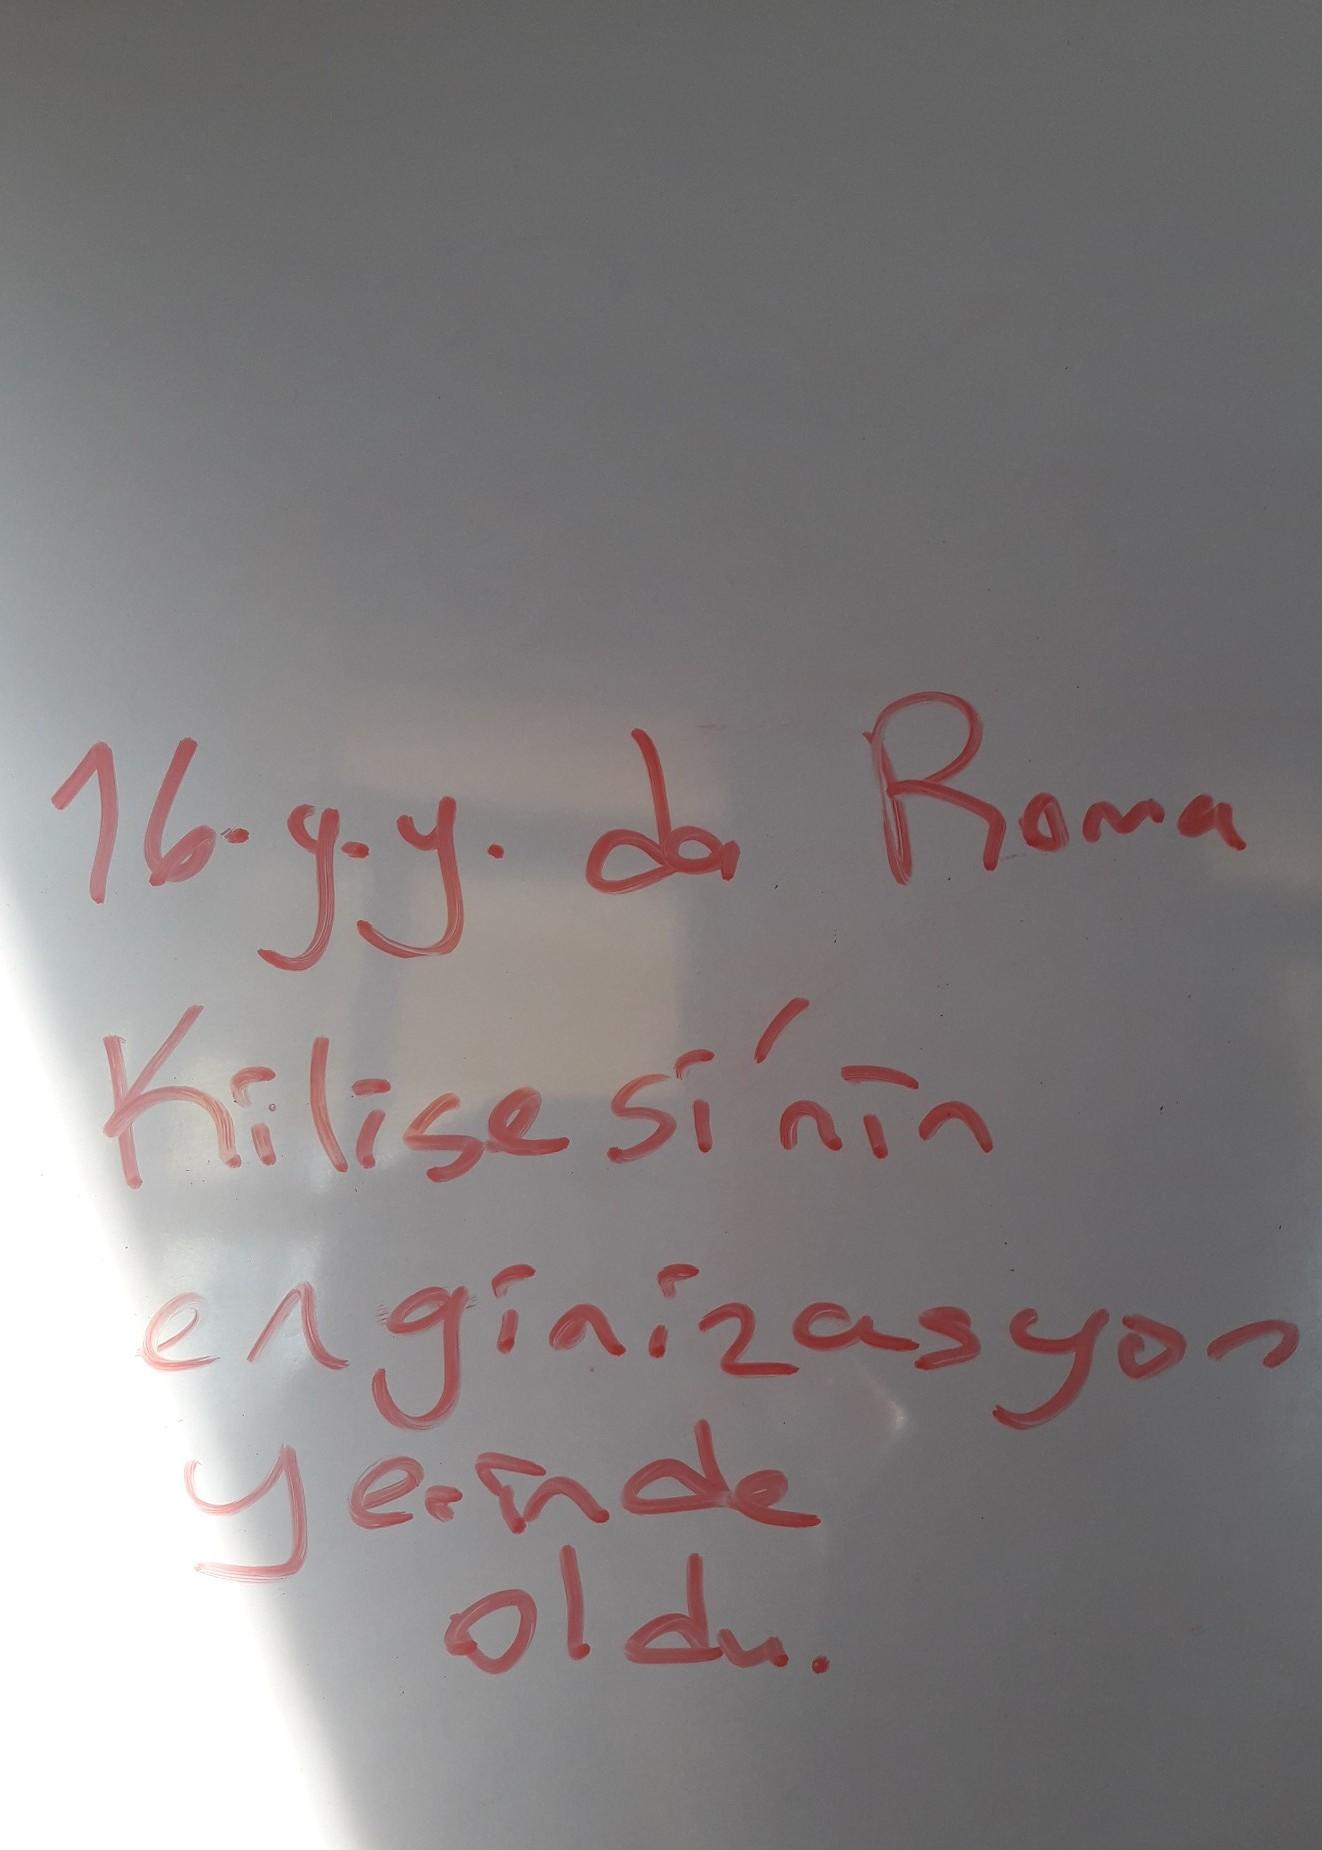 16. y.y. da Roma
Kilisesi'nin
enginizasyon
yerinde
oldu.